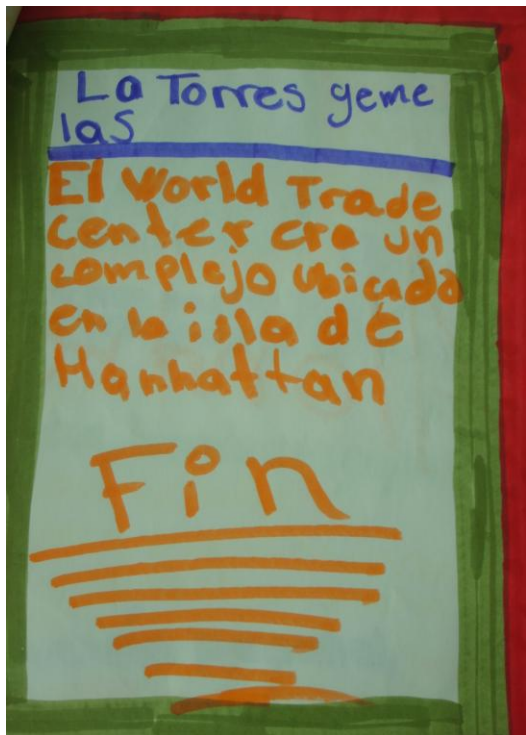 La Torres geme
las
El World Trade
center era un
complejo ubicado
en la isla de
Manhattan
Fin